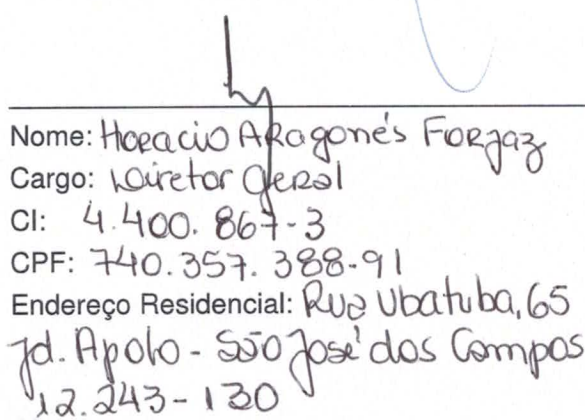 Nome: Horacio Aragonés Forjaz
Cargo: Diretor Geral
CI: 4.400.867-3
CPF: 740.357.388-91
Endereço Residencial: Rua Ubatuba, 65
Jd. Apolo - São José dos Campos
12.243-130